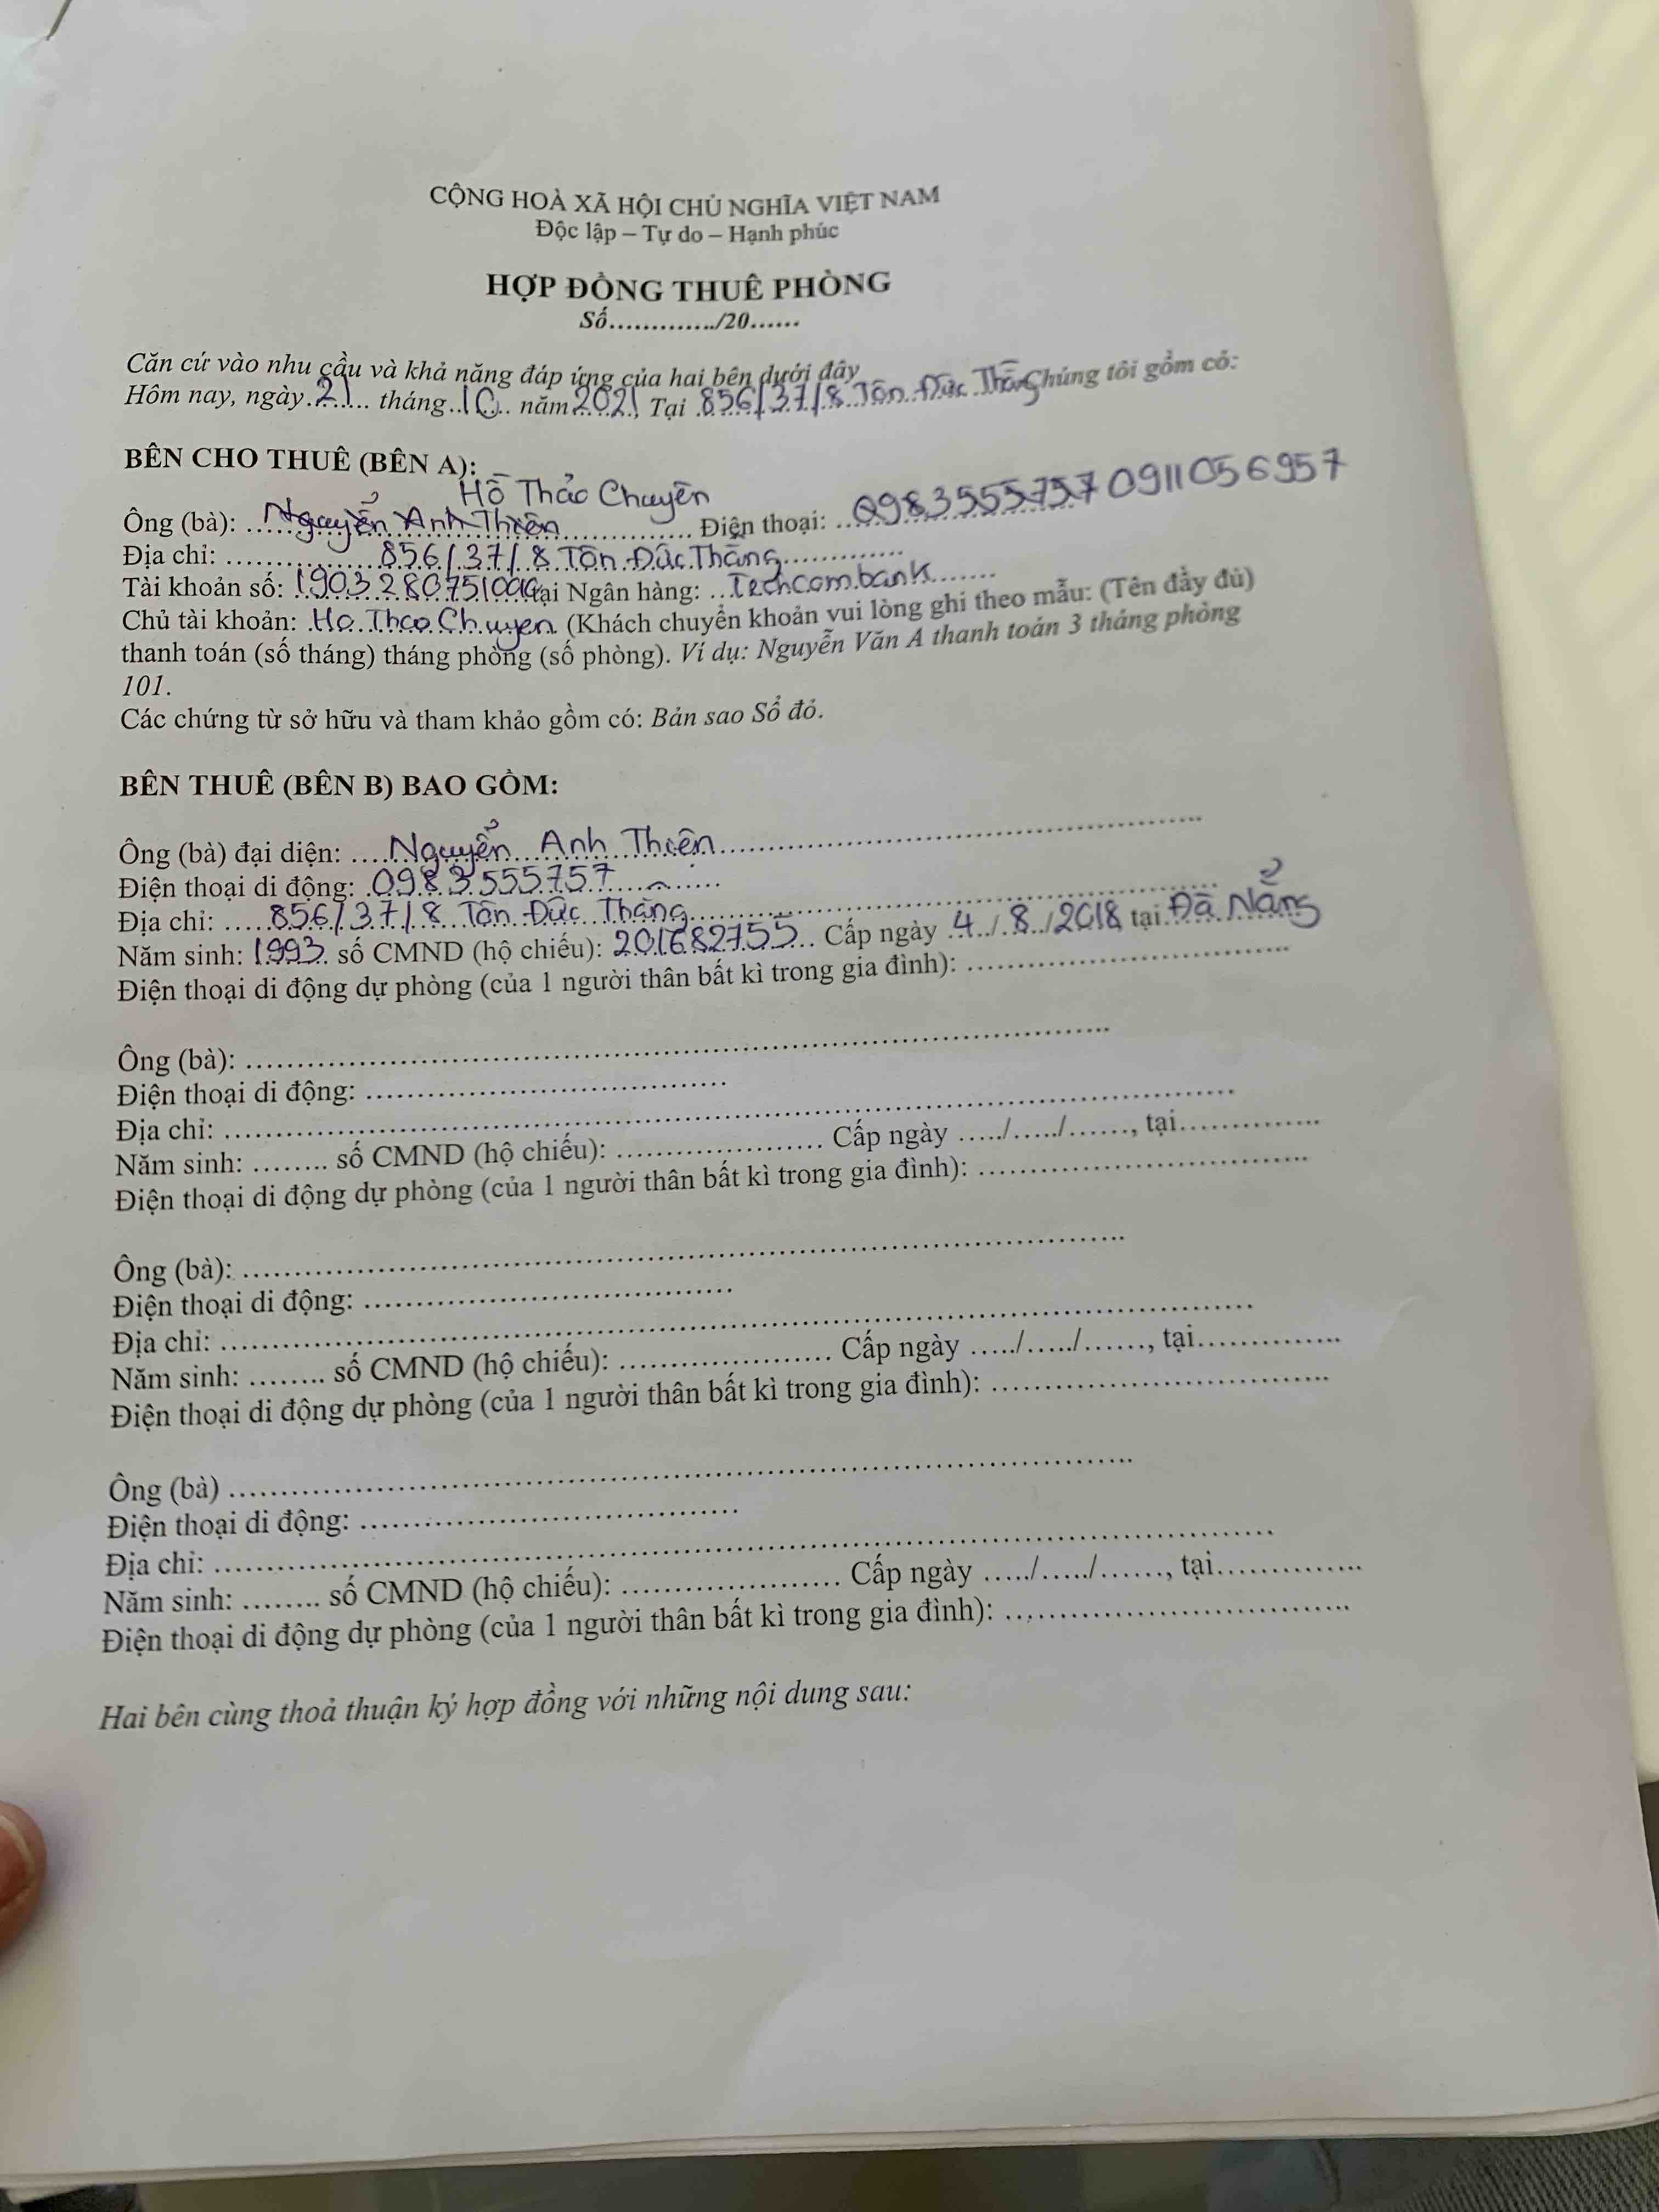 CỘNG HOÀ XÃ HỘI CHỦ NGHĨA VIỆT NAM
Độc lập – Tự do – Hạnh phúc
HỢP ĐỒNG THUÊ PHÒNG
Số............./20......
Căn cứ vào nhu cầu và khả năng đáp ứng của hai bên dưới đây
Hôm nay, ngày 21 tháng 10 năm 2021, Tại 856/37/8 Tôn Đức Thắng Chúng tôi gồm có:
BÊN CHO THUÊ (BÊN A):
Hồ Thảo Chuyên
Ông (bà): Nguyễn Anh Thiên Điện thoại: 0983555757 0911056957
Địa chỉ: 856/37/8 Tôn Đức Thắng
Tài khoản số: tại Ngân hàng: Techcombank
Chủ tài khoản: Ho Thao Chuyen (Khách chuyển khoản vui lòng ghi theo mẫu: (Tên đầy đủ)
thanh toán (số tháng) tháng phòng (số phòng). Ví dụ: Nguyễn Văn A thanh toán 3 tháng phòng
101.
Các chứng từ sở hữu và tham khảo gồm có: Bản sao Sổ đỏ.
BÊN THUÊ (BÊN B) BAO GỒM:
Ông (bà) đại diện: Nguyễn Anh Thiên
Điện thoại di động: 0983555757
Địa chỉ: 856/37/8 Tôn Đức Thắng
Năm sinh: 1993 số CMND (hộ chiếu): 201682755 Cấp ngày 4/8/2018 tại Đà Nẵng
Điện thoại di động dự phòng (của 1 người thân bất kì trong gia đình): ..............................
Ông (bà): ..............................
Điện thoại di động: ..............................
Địa chỉ: ..............................
Năm sinh: ........ số CMND (hộ chiếu): .................... Cấp ngày ...../...../......, tại..............
Điện thoại di động dự phòng (của 1 người thân bất kì trong gia đình): ..............................
Ông (bà): ..............................
Điện thoại di động: ..............................
Địa chỉ: ..............................
Năm sinh: ........ số CMND (hộ chiếu): .................... Cấp ngày ...../...../......, tại..............
Điện thoại di động dự phòng (của 1 người thân bất kì trong gia đình): ..............................
Ông (bà) ..............................
Điện thoại di động: ..............................
Địa chỉ: ..............................
Năm sinh: ........ số CMND (hộ chiếu): .................... Cấp ngày ...../...../......, tại..............
Điện thoại di động dự phòng (của 1 người thân bất kì trong gia đình): ..............................
Hai bên cùng thoả thuận ký hợp đồng với những nội dung sau: